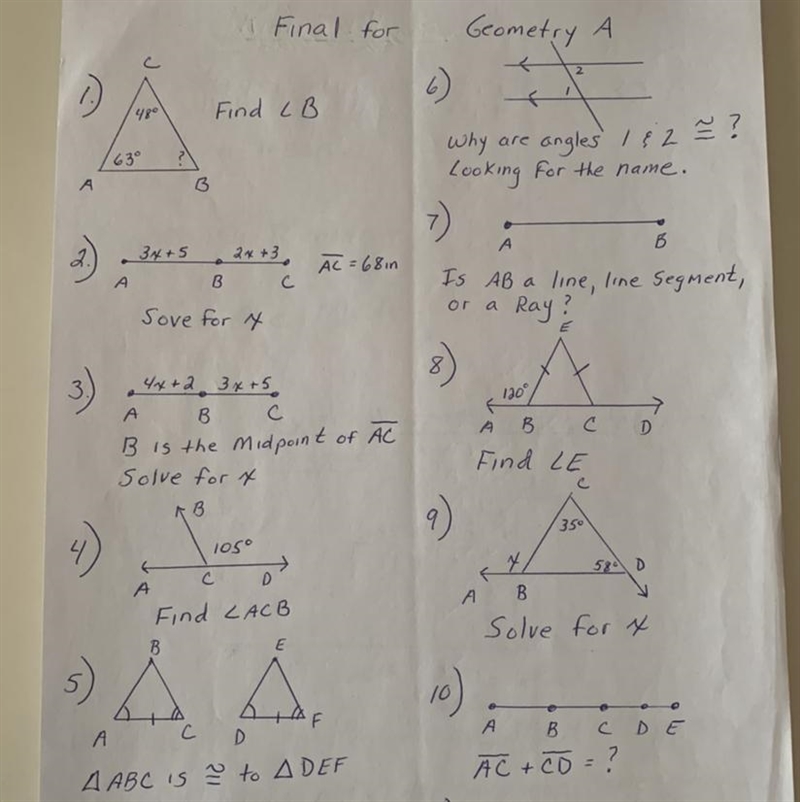 Final for Geometry A
1.)
C
48°
63°
?
A
B
Find ∠B
2.)
3x+5
2x+3
A
B
C
AC = 68in
Sove for x
3.)
4x+2
3x+5
A
B
C
B is the Midpoint of AC
Solve for x
4)
B
105°
A
C
D
Find ∠ACB
5)
B
E
A
C
D
F
△ABC is ≅ to △DEF
6)
2
1
Why are angles 1 & 2 ≅ ?
Looking for the name.
7)
A
B
Is AB a line, line segment,
or a Ray?
8)
E
120°
A
B
C
D
Find ∠E
9)
C
35°
x
58°
D
A
B
Solve for x
10)
A
B
C
D
E
AC + CD = ?